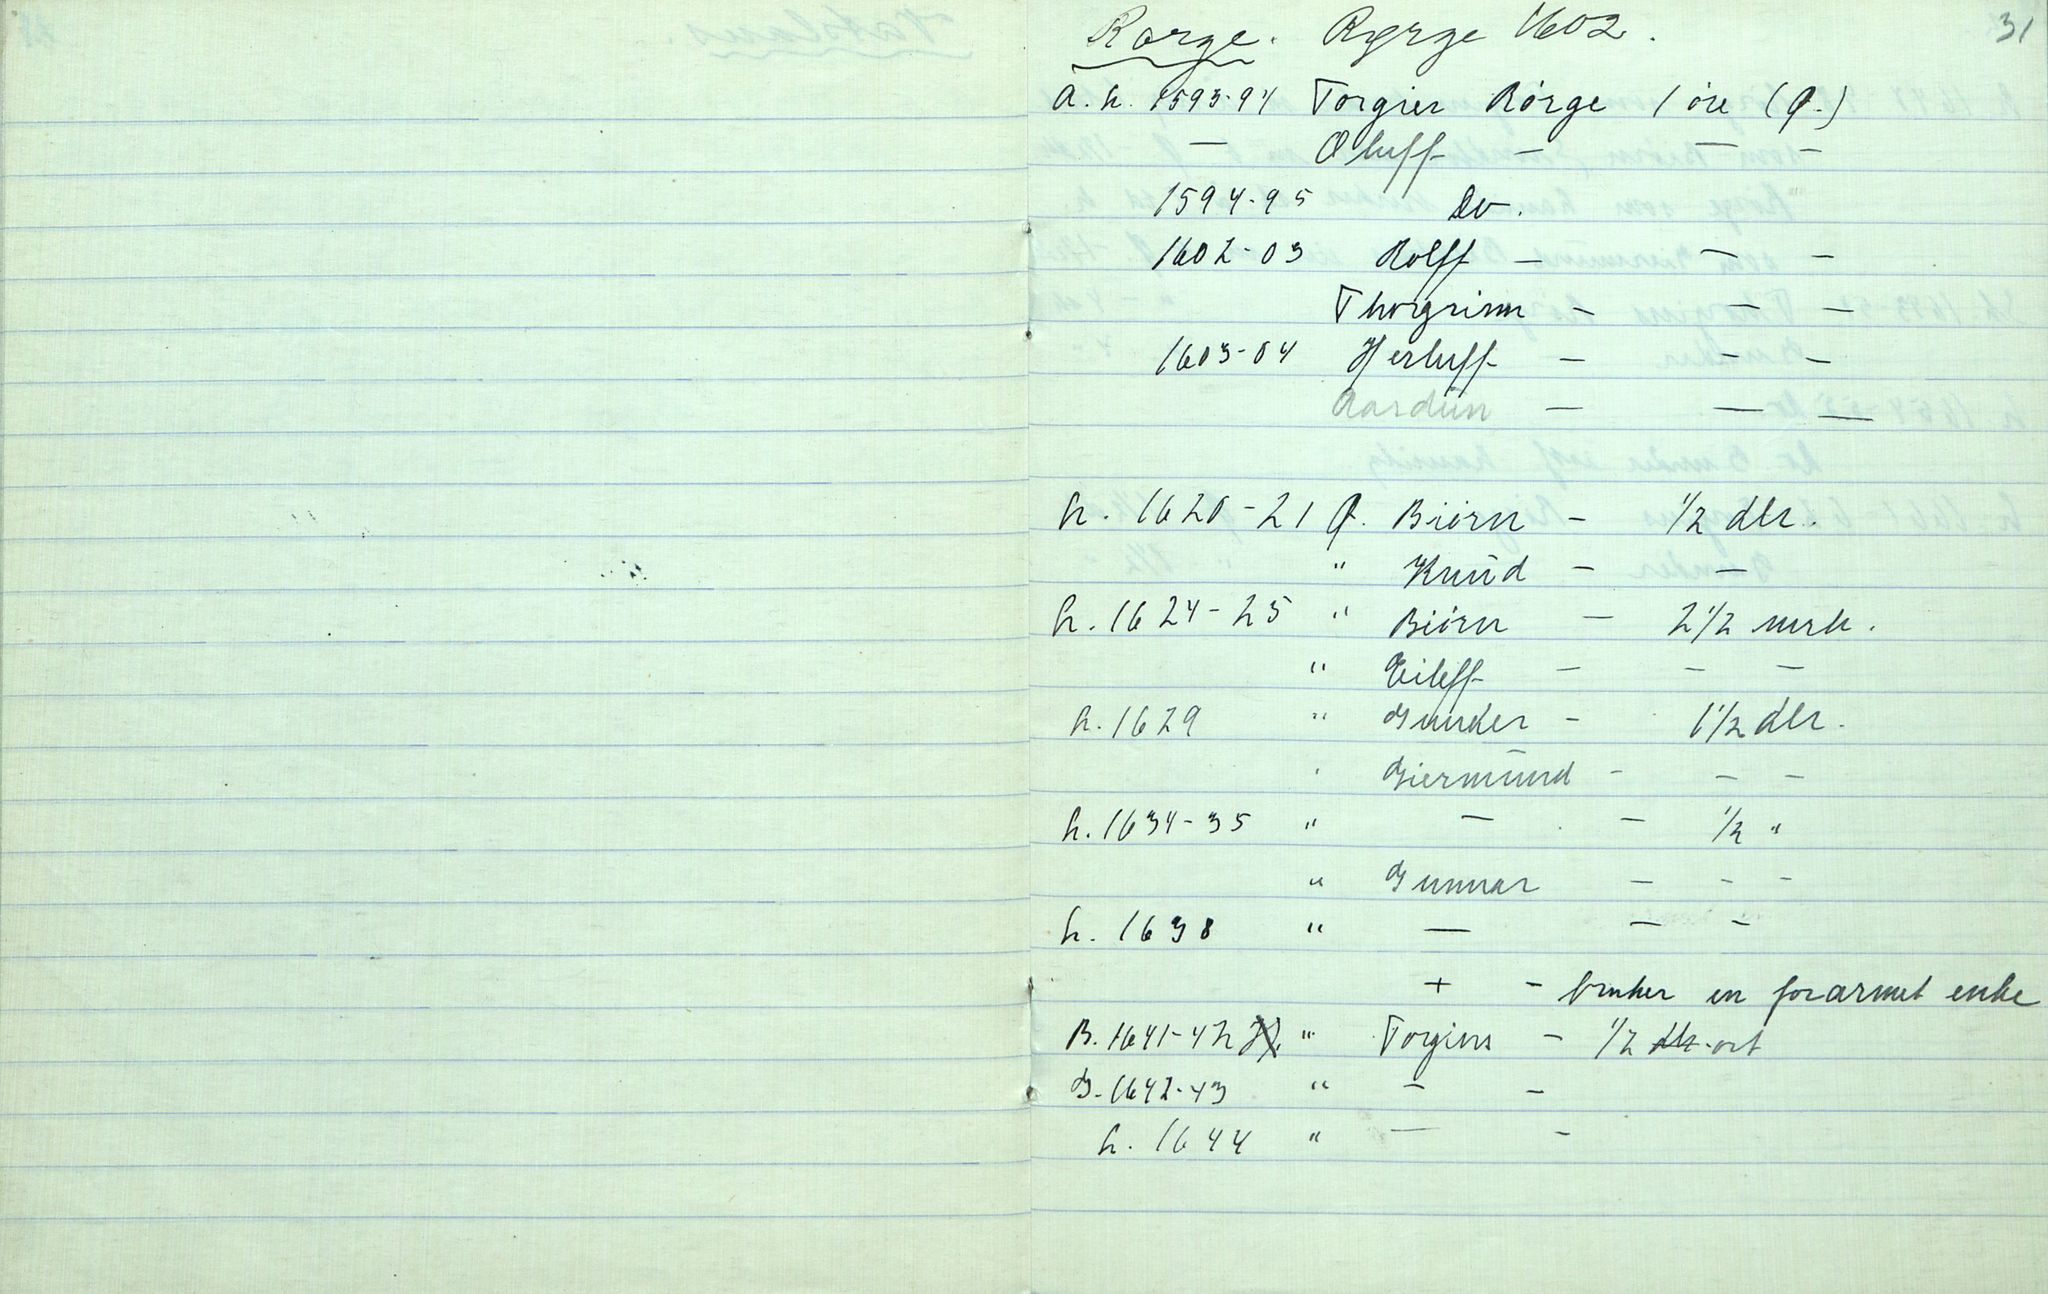 31
Rørge. Rørge 1602.
A. h. 1593-94 Torgier Rörge 1 öre (Ø.)
— Oluff — — —
1594-95 Do.
1602-03 Rolff — — —
Thorgrim — — —
1603-04 Herluff — — —
Aardun — — —
h. 1620-21 Ø. Biörn — 1/2 dlr.
" Knud — —
h. 1624-25 " Biörn — 2 1/2 mrk.
" Eileff — — —
h. 1629 " Gunder — 1 1/2 dlr.
" Giermund — — —
h. 1634-35 " — — 1/2 "
" Gunnar — — —
h. 1638 " — — —
+ — bruker en forarmet enke
B. 1641-42 " Torgius — 1/2 dlr. ort
B. 1642-43 " — —
h. 1644 " — —